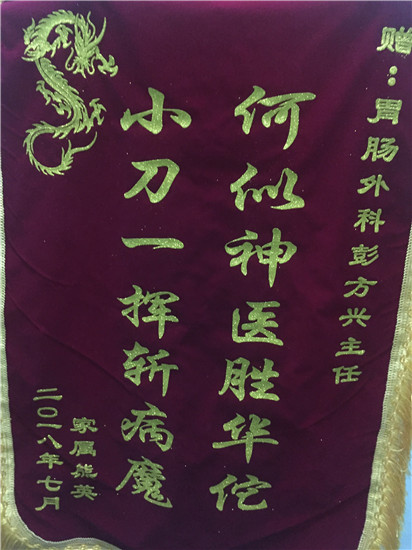 赠：胃肠外科彭方兴主任
何似神医胜华佗
小刀一挥斩病魔
家属熊英
二〇一八年七月